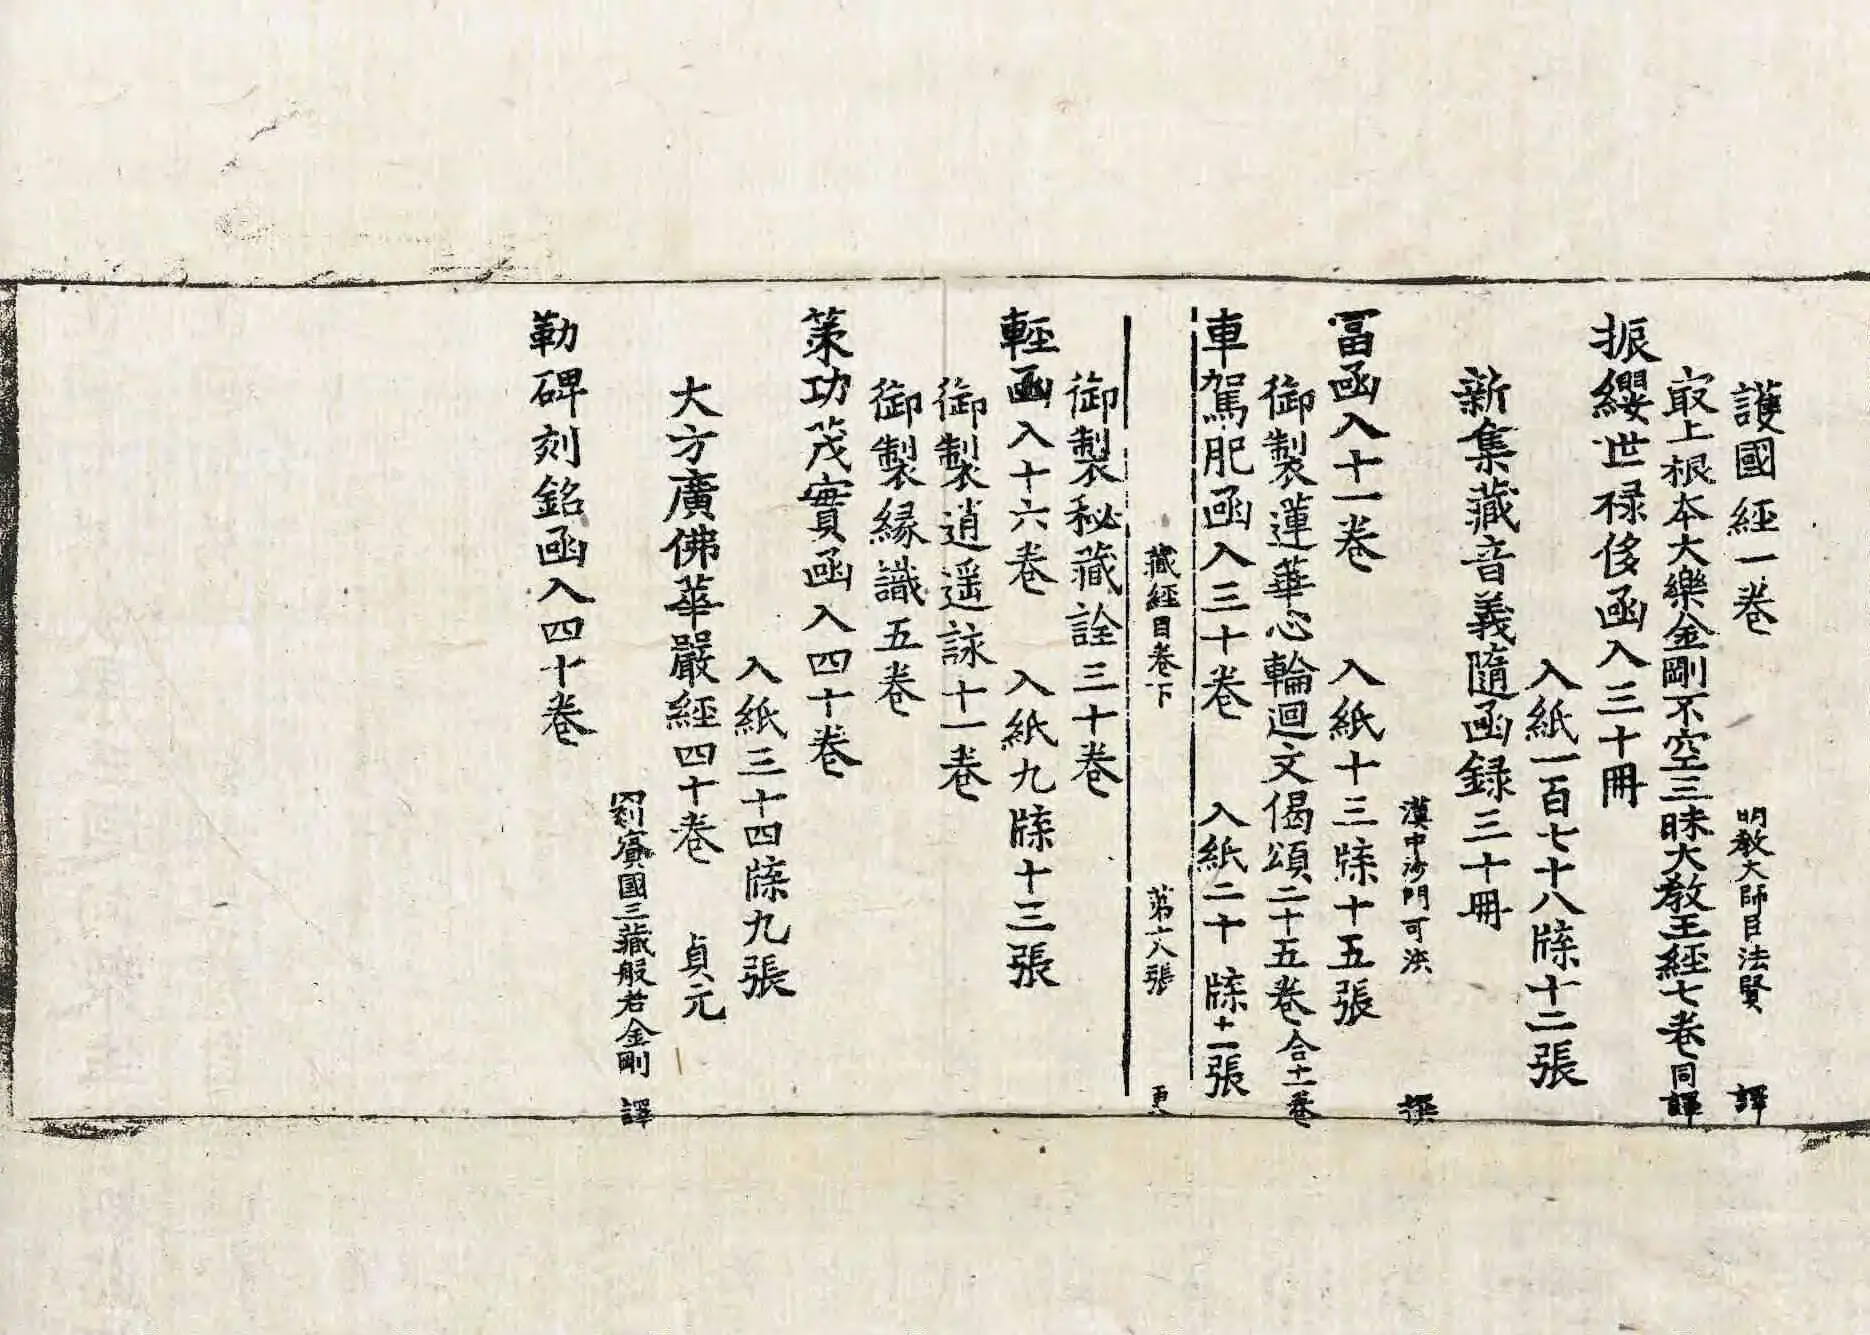 護國經一卷 明教大師臣法賢 譯
㝡上根本大樂金剛不空三昧大教王經七卷同譯
振纓世祿侈函入三十冊
入紙一百七十八牒十二張
新集藏音義隨函録三十冊
漢中沙門可洪 撰
冨函入十一卷 入紙十三牒十五張
御製蓮華心輪迴文偈頌二十五卷合十一卷
車駕肥函入三十卷 入紙二十牒十一張
藏經目卷下 第六張 更
御製秘藏詮三十卷
輕函入十六卷 入紙九牒十三張
御製逍遥詠十一卷
御製縁識五卷
策功茂實函入四十卷
入紙三十四牒九張
大方廣佛華嚴經四十卷 貞元
罽賓國三藏般若金剛 譯
勒碑刻銘函入四十卷